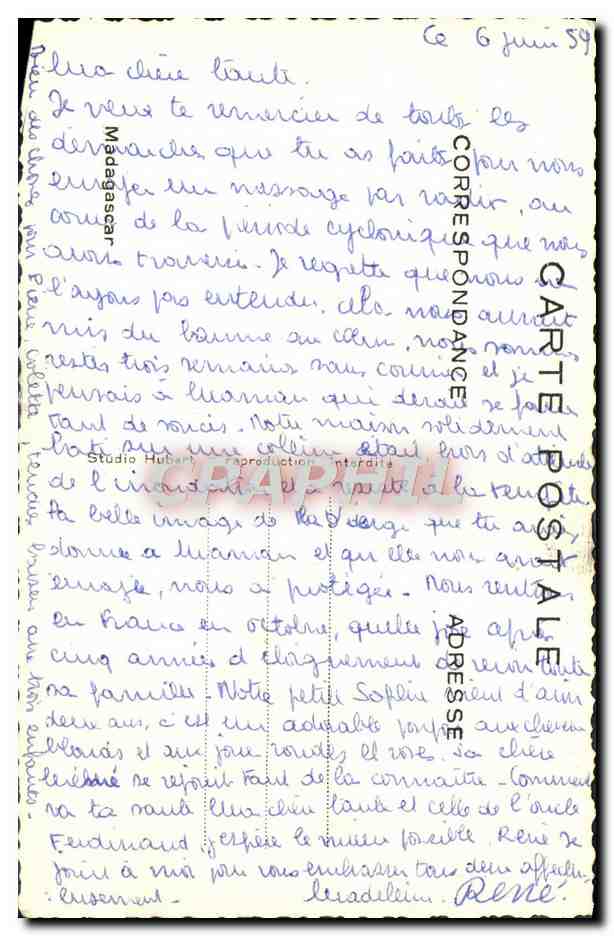 Ce 6 juin 59
Ma chère tante.
Je veux te remercier de toutes les
démarches que tu as faites pour nous
envoyer un message par radio, au
cours de la période cyclonique que nous
avons traversée. Je regrette que nous ne
l'ayons pas entendu. Cela nous aurait
mis du baume au cœur, nous sommes
restés trois semaines sans courrier et je
pensais à Maman qui devait se faire
tant de soucis. Notre maison solidement
batie sur une colline était hors d'atteinte
de l'inondation et a résisté à la tempête.
La belle image de la Vierge que tu avais
donnée à Maman et qu'elle nous avait
envoyée, nous a protégés. Nous rentrons
en France en octobre, quelle joie après
cinq années d'éloignement de revoir toute
sa famille. Notre petite Sophie vient d'avoir
deux ans, c'est un adorable poupon aux cheveux
blonds et aux joues rondes et roses. Sa chère
se réjouit tant de la connaître. Comment
va ta santé Ma chère tante et celle de l'oncle
Ferdinand j'espère le mieux possible. René se
joint à moi pour vous embrasser tous deux affectu-
eusement.
Madeleine. René.
Bien des choses pour Pierre, Colette, tendres baisers aux trois enfants.
Madagascar
Studio Hubert reproduction interdite
CARTE POSTALE
CORRESPONDANCE
ADRESSE
CPAPHIL